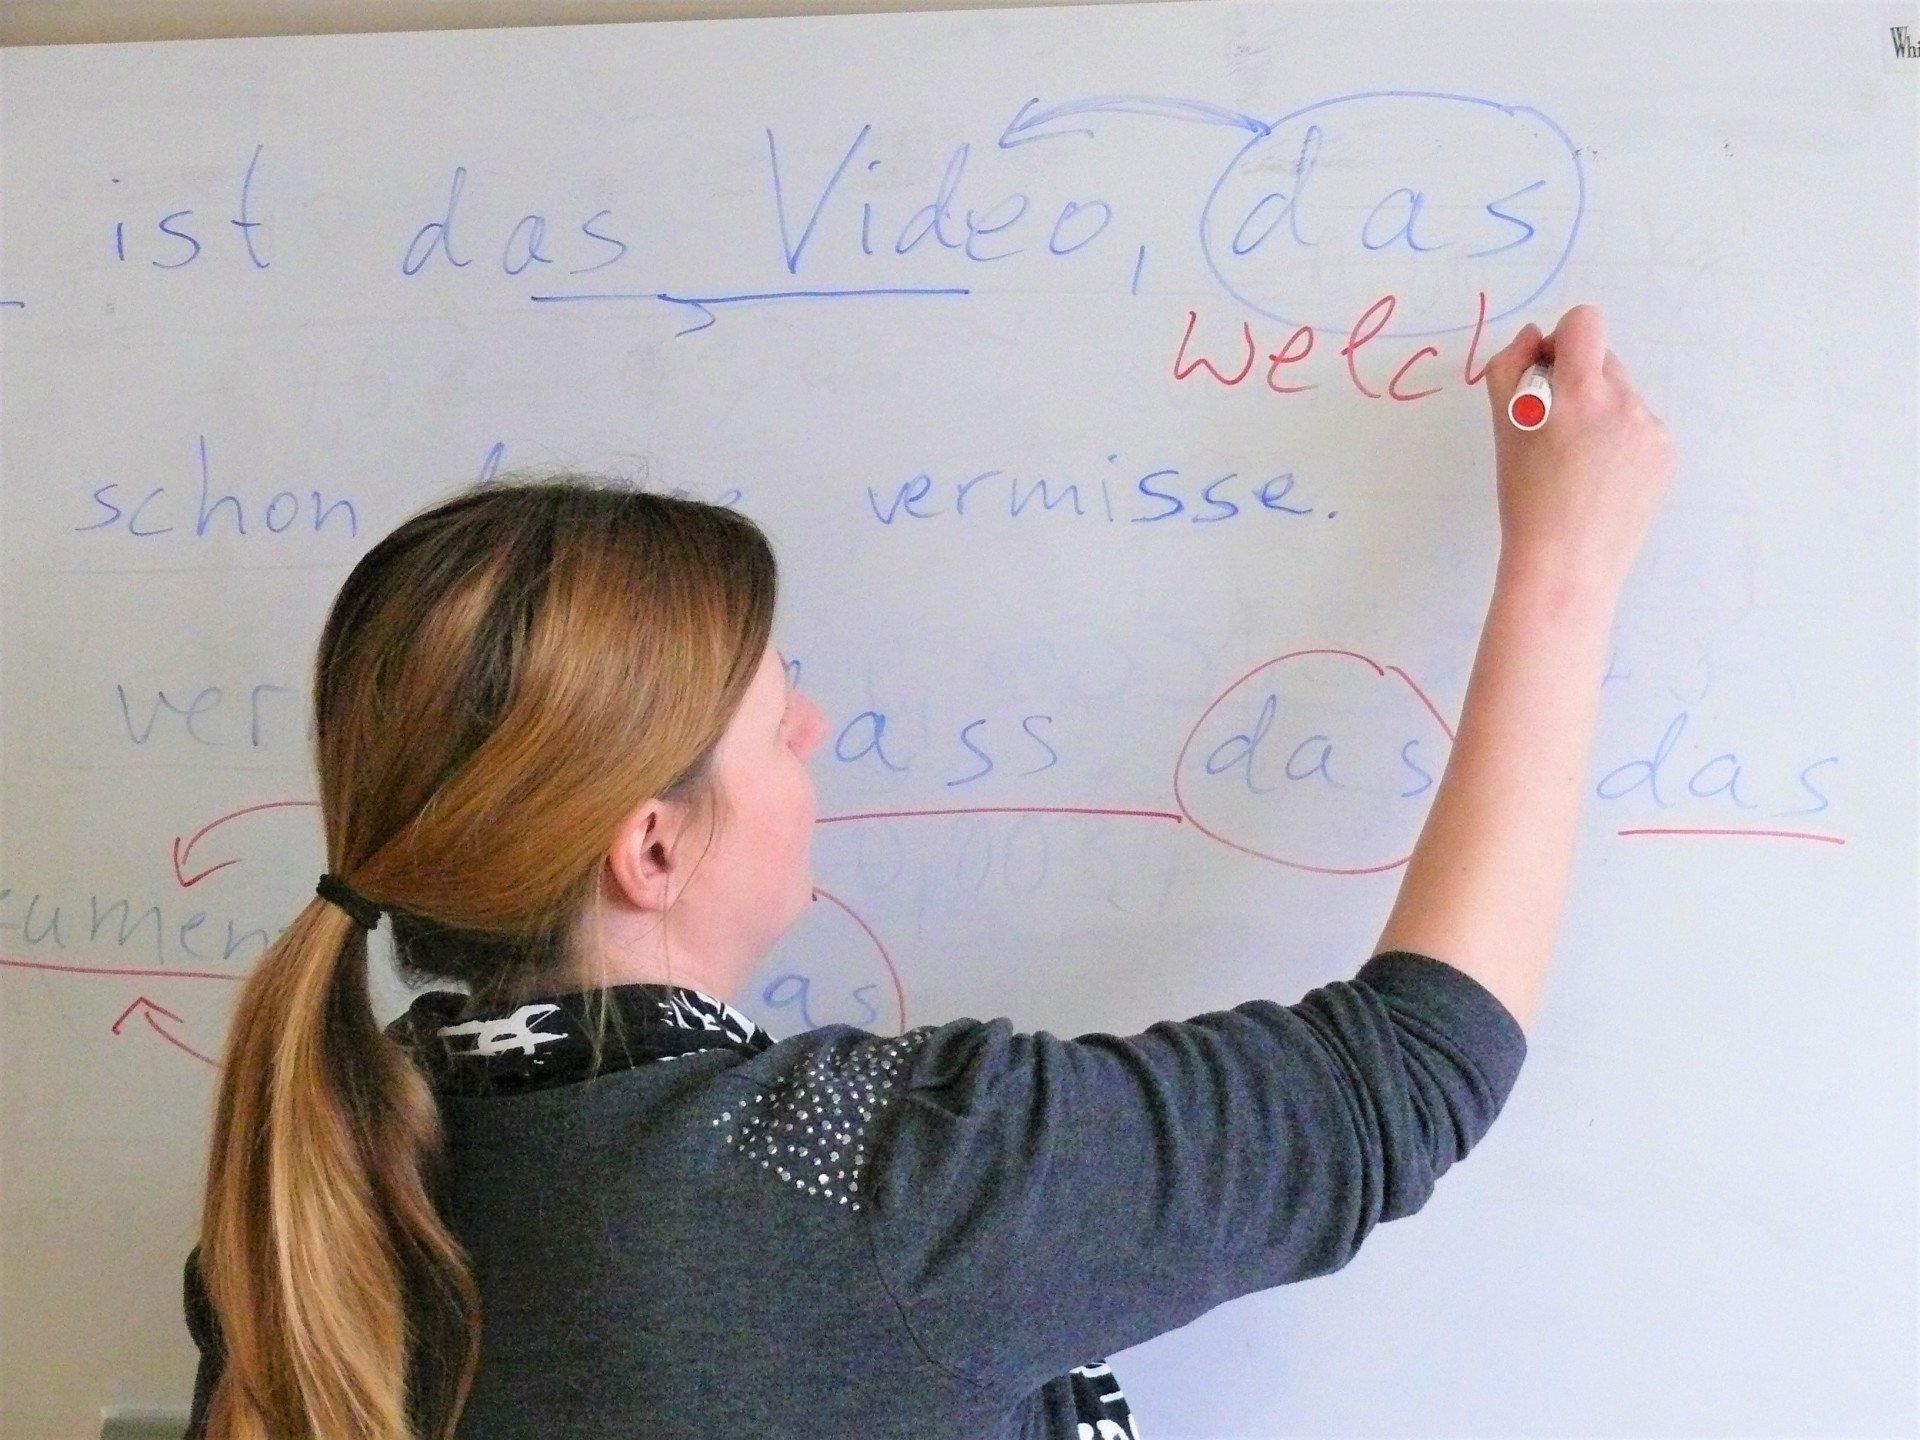 Whi
ist das Video, das
welch
schon vermisse.
ver ass das das
umen
as